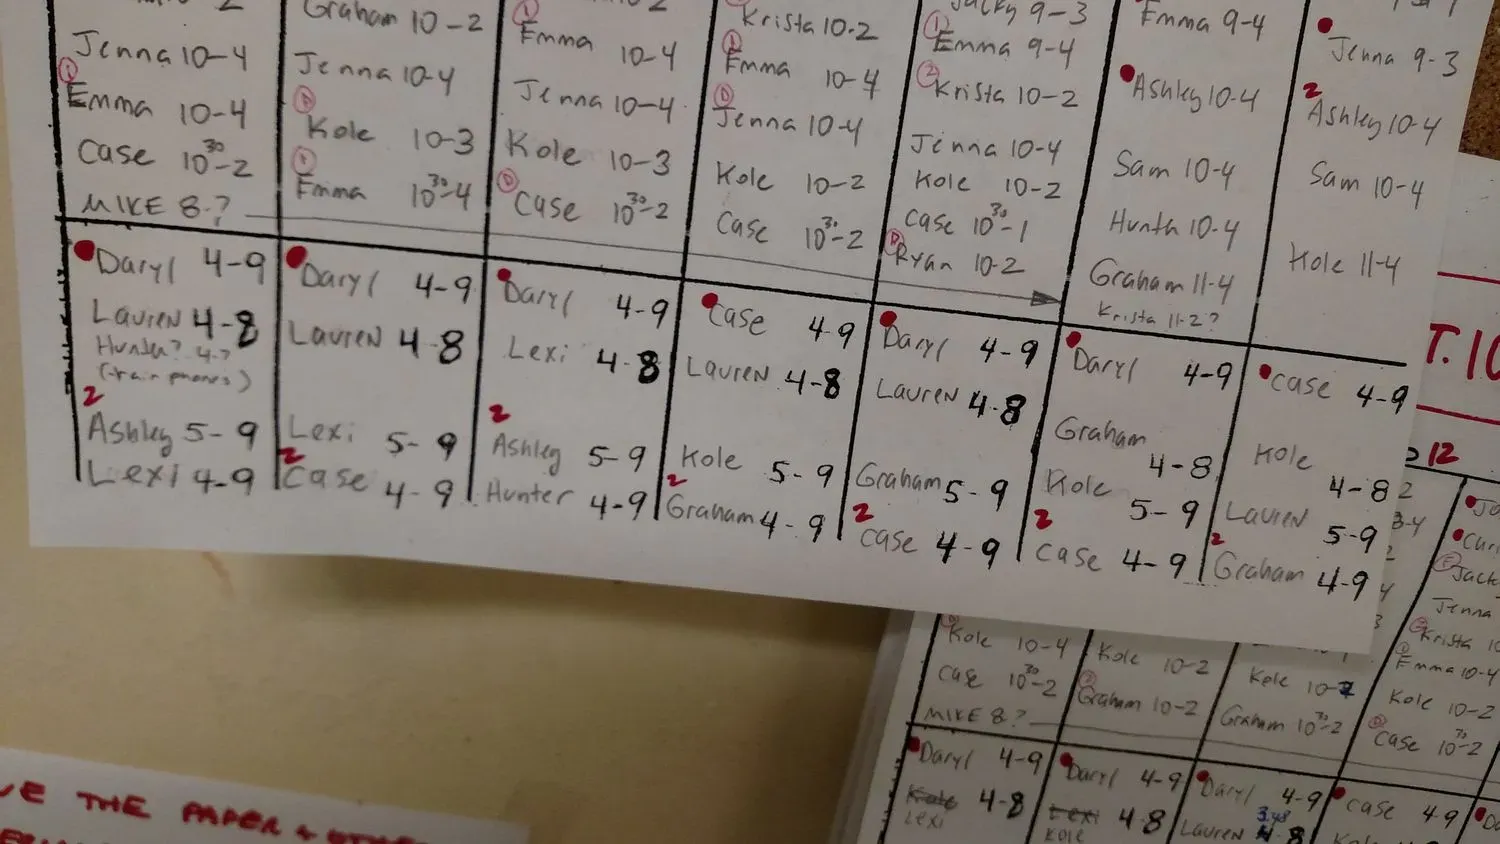 Graham 10-2
Jenna 10-4
① Emma 10-4
Case 10³⁰-2
MIKE 8-?
Jenna 10-4
Kole 10-3
Emma 10³⁰-4
① Emma 10-4
Jenna 10-4
Kole 10-3
Ⓓ Case 10³⁰-2
Krista 10-2
Emma 10-4
Ⓓ Jenna 10-4
Kole 10-2
Case 10³⁰-2
Jacky 9-3
① Emma 9-4
② Krista 10-2
Jenna 10-4
Kole 10-2
Case 10³⁰-1
Ⓓ Ryan 10-2
Emma 9-4
Ashley 10-4
Sam 10-4
Hunta 10-4
Graham 11-4
Krista 11-2?
Jenna 9-3
2
Ashley 10-4
Sam 10-4
Kole 11-4
Daryl 4-9
Lauren 4-8
Hunter? 4-?
(train phones)
2
Ashley 5-9
Lexi 4-9
Daryl 4-9
Lauren 4-8
Lexi 5-9
2
Case 4-9
Daryl 4-9
Lexi 4-8
2
Ashley 5-9
Hunter 4-9
Case 4-9
Lauren 4-8
Kole 5-9
2
Graham 4-9
Daryl 4-9
Lauren 4-8
Graham 5-9
2
Case 4-9
Daryl 4-9
Graham 4-8
Kole 5-9
2
Case 4-9
Case 4-9
Kole 4-8
Lauren 5-9
2
Graham 4-9
T. 10
12
Kole 10-4
Case 10³⁰-2
MIKE 8-?
Kole 10-2
Graham 10-2
Kole 10-2
Graham 10³⁰-2
Jack
Jenna
Krista 10
Emma 10-4
Kole 10-2
Case 10³⁰-2
Daryl 4-9
Kole 4-8
Lexi
Daryl 4-9
Lexi 4-8
Kole
Daryl 4-9
3:45
Lauren 4-8
Case 4-9
THE PAPER +